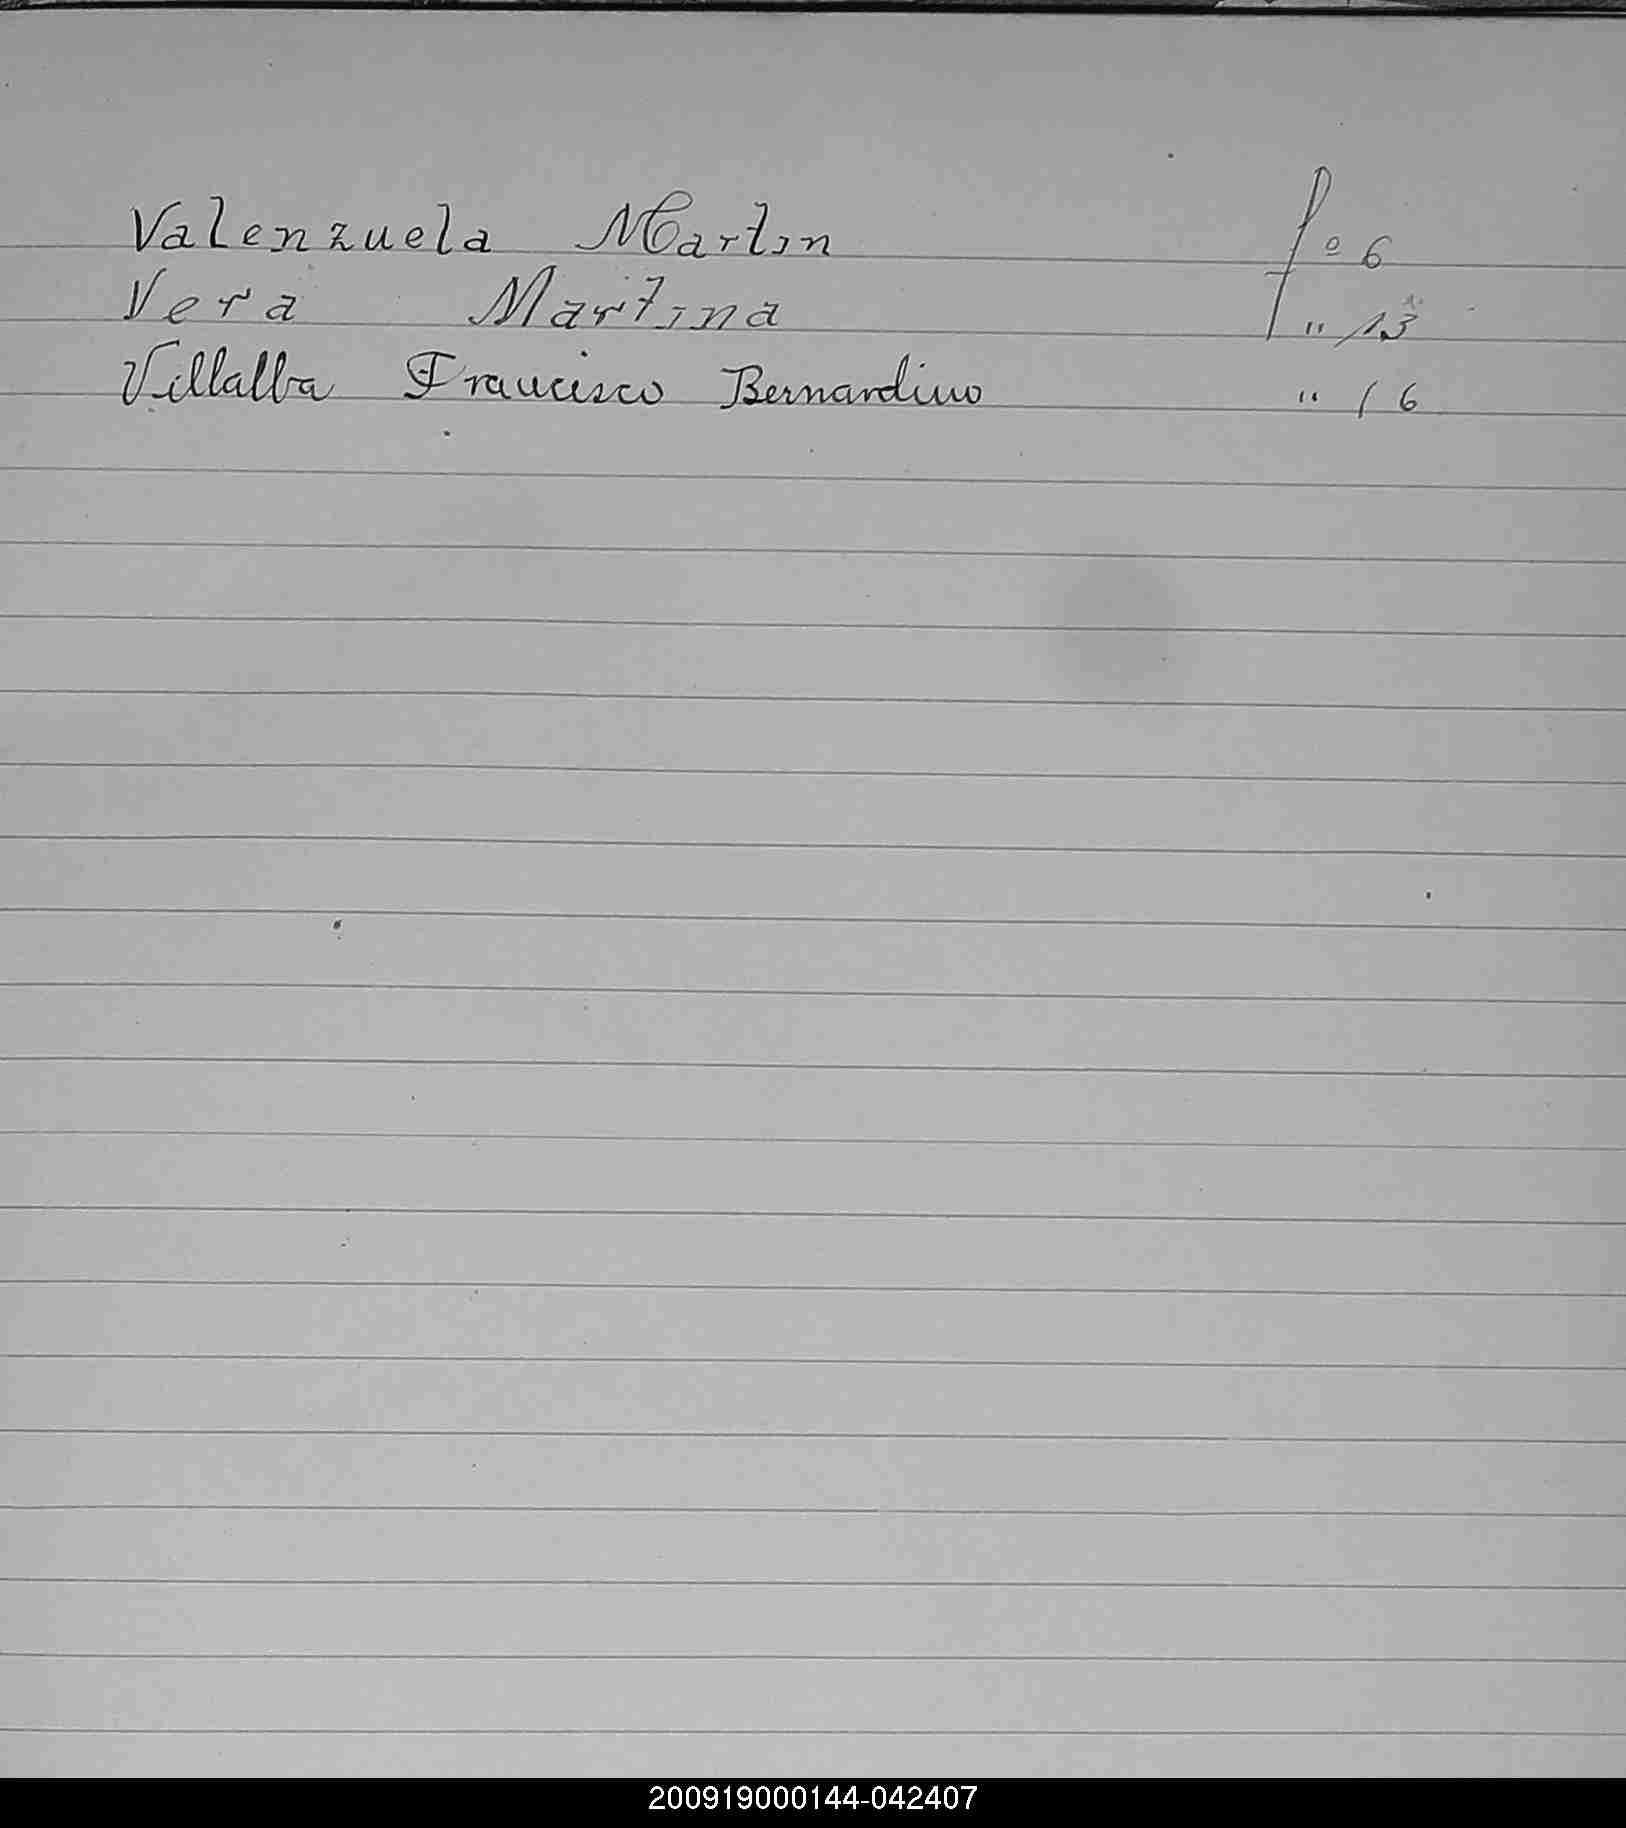 Valenzuela Martin fº 6
Vera Martina " 13
Villalba Francisco Bernardino " 16
200919000144-042407